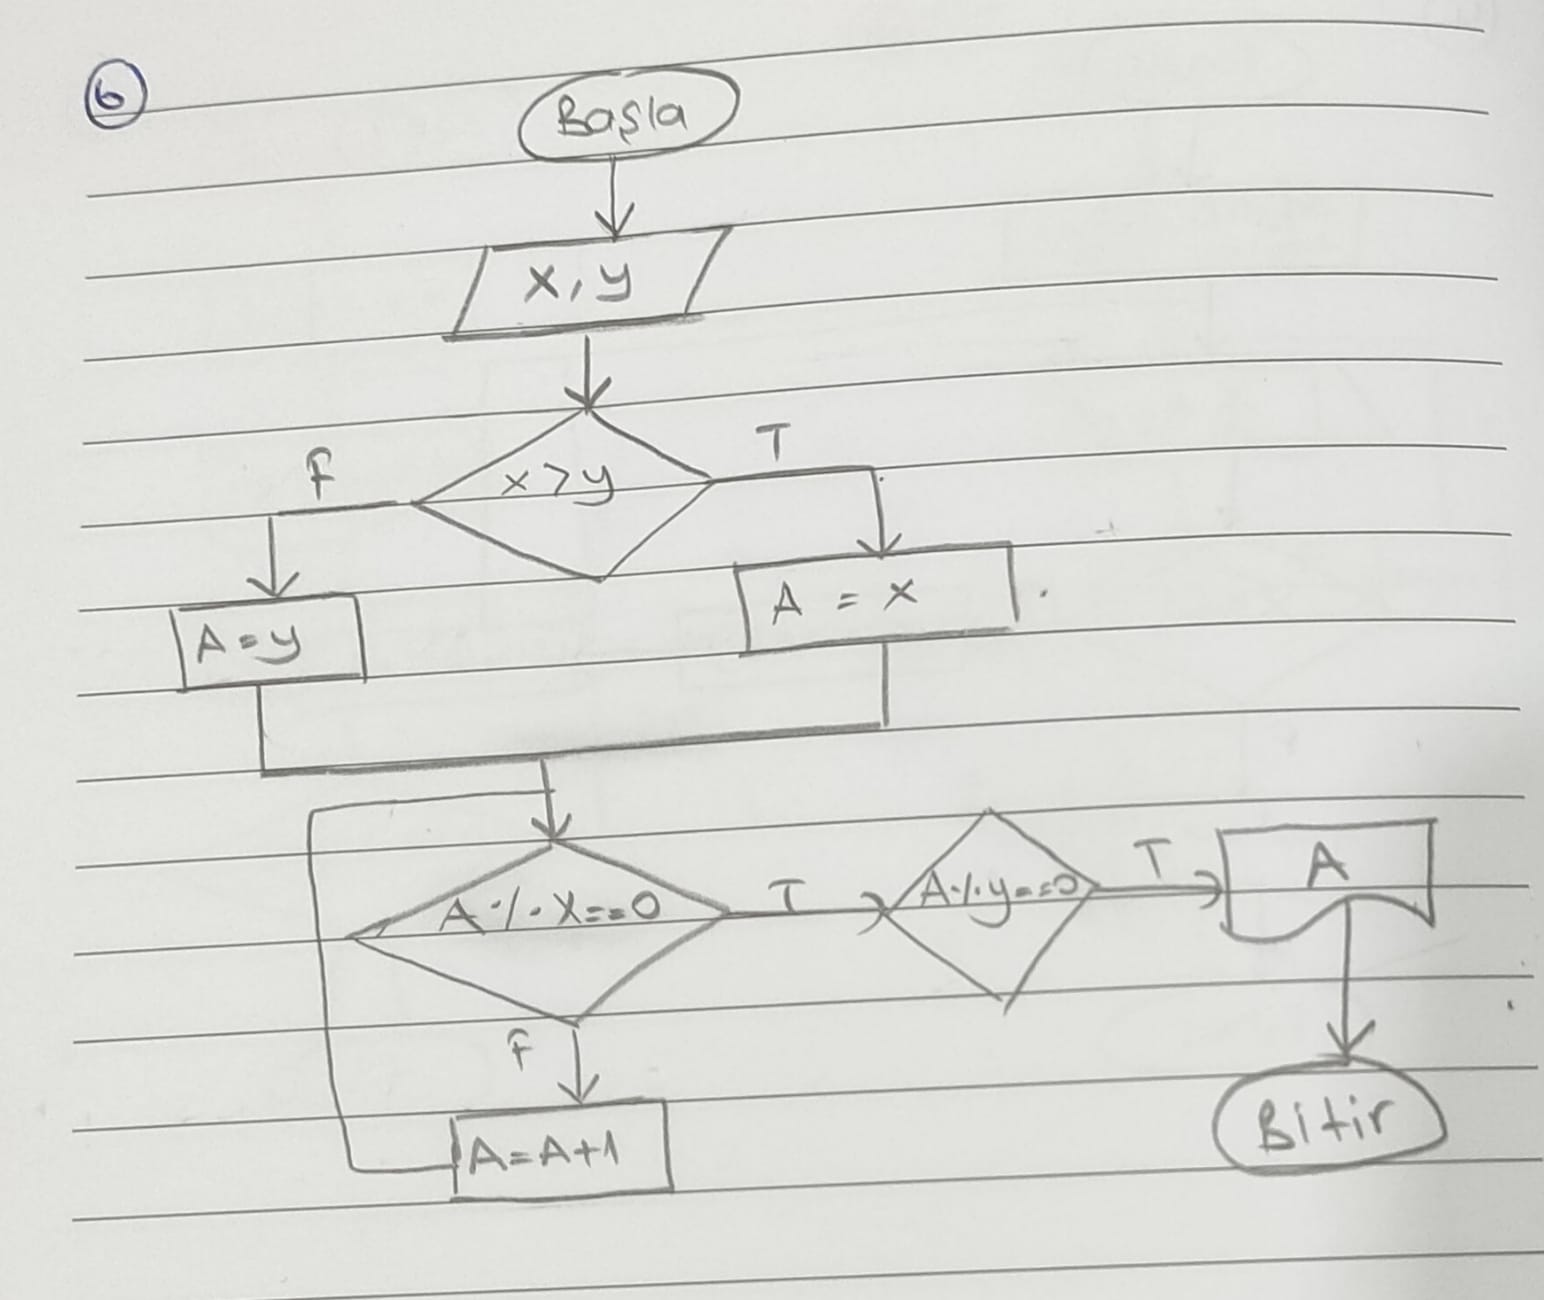 6
Başla
x, y
x > y
F
T
A = y
A = x
A % x == 0
T
A % y == 0
T
A
F
A = A + 1
Bitir